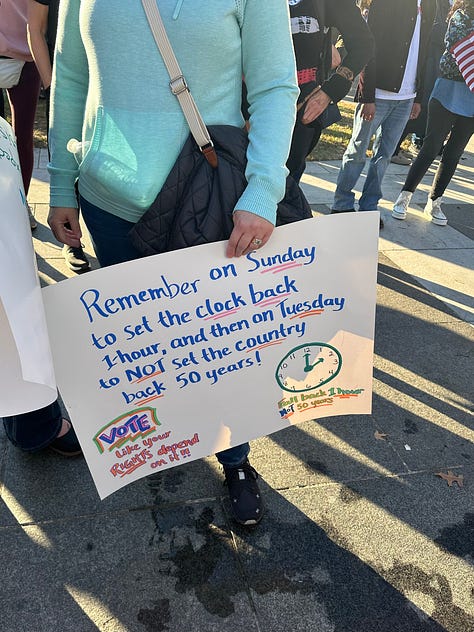 Remember on Sunday
to set the clock back
1 hour, and then on Tuesday
to NOT set the country
back 50 years!
VOTE
Like your
RIGHTS depend
on it!!
12
1
2
3
4
5
6
7
8
9
10
11
Fall back 1 hour
NOT 50 years